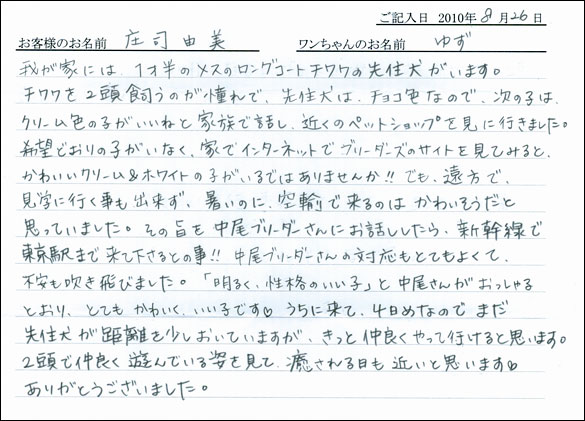 ご記入日 2010年8月26日
お客様のお名前 庄司由美 ワンちゃんのお名前 ゆず
我が家には、1才半のメスのロングコートチワワの先住犬がいます。
チワワを2頭飼うのが憧れで、先住犬は、チョコ色なので、次の子は、
クリーム色の子がいいねと家族で話し、近くのペットショップを見に行きました。
希望どおりの子がいなく、家でインターネットでブリーダーズのサイトを見てみると、
かわいいクリーム&ホワイトの子がいるではありませんか!!でも、遠方で、
見学に行く事も出来ず、暑いのに、空輸で来るのはかわいそうだと
思っていました。その旨を中尾ブリーダーさんにお話ししたら、新幹線で
東京駅まで来て下さるとの事!!中尾ブリーダーさんの対応もとてもよくて、
不安も吹き飛びました。「明るく、性格のいい子」と中尾さんがおっしゃる
とおり、とてもかわいく、いい子です♡ うちに来て、4日めなのでまだ
先住犬が距離を少しおいていますが、きっと仲良くやって行けると思います。
2頭で仲良く遊んでいる姿を見て、癒される日も近いと思います♡
ありがとうございました。